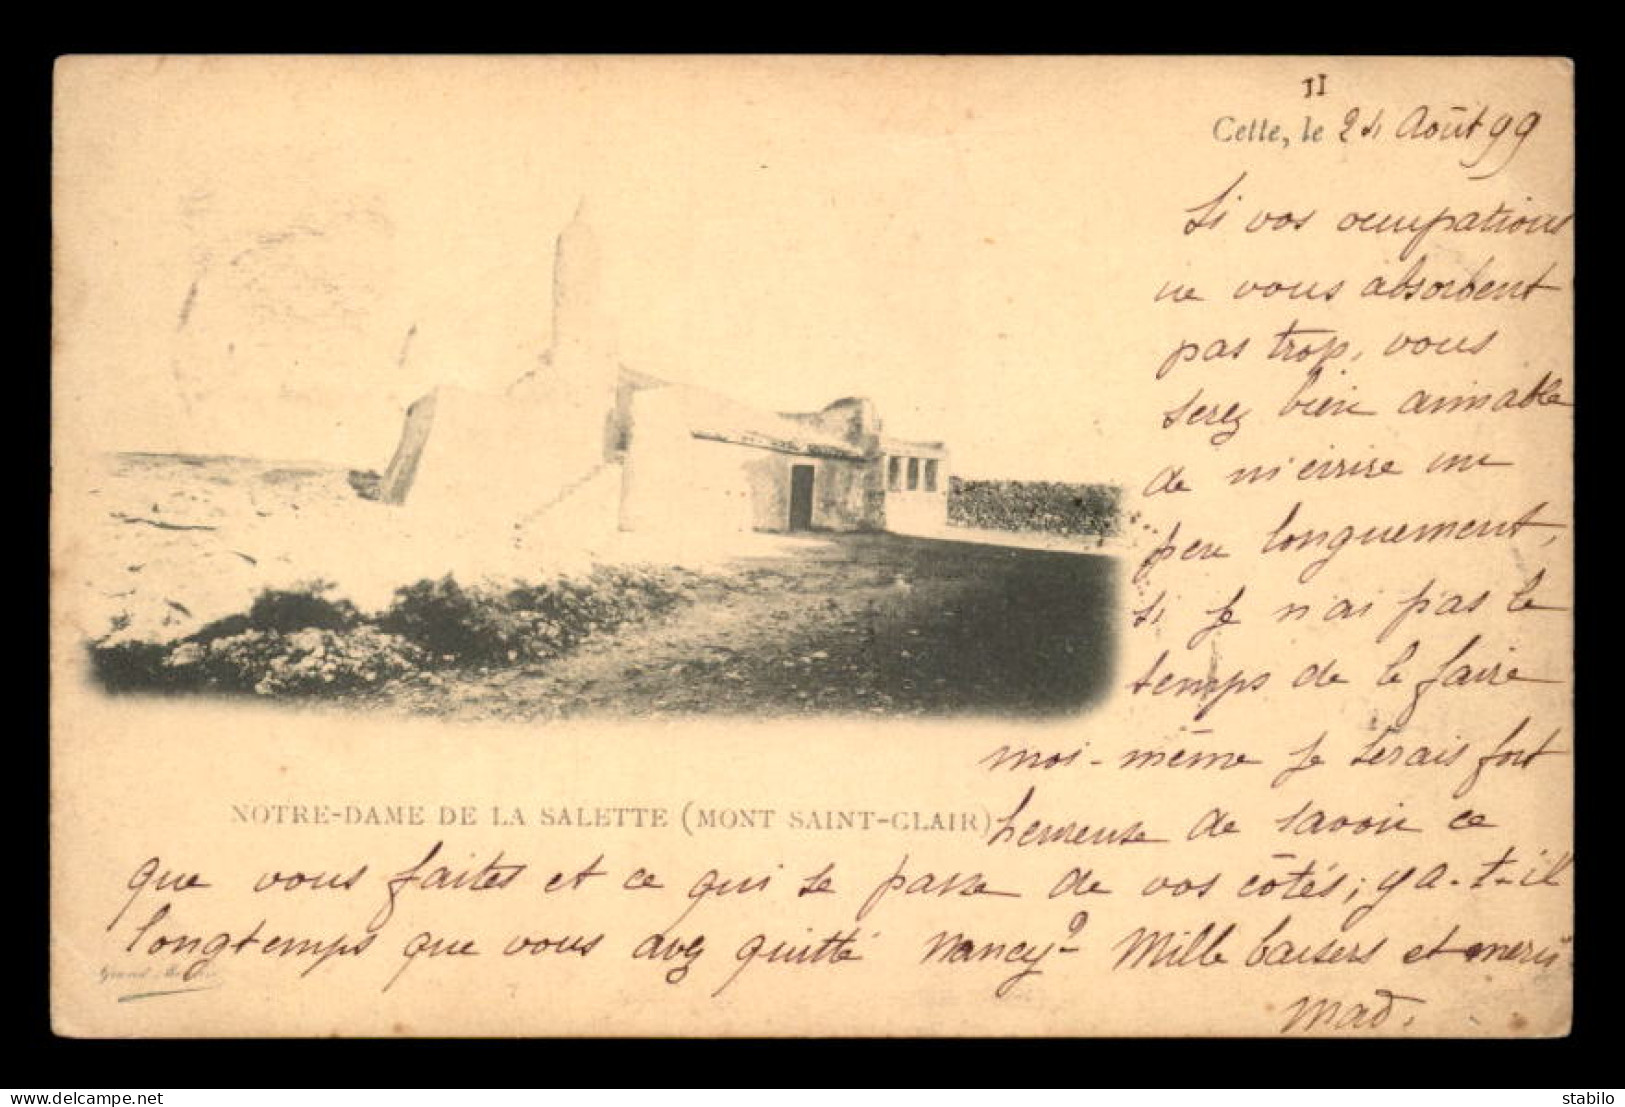 II
Cette, le 24 Août 99
Si vos occupations
ne vous absorbent
pas trop, vous
serez bien aimable
de m'écrire un
peu longuement,
si je n'ai pas le
temps de le faire
moi-même je serais fort
NOTRE-DAME DE LA SALETTE (MONT SAINT-CLAIR)
heureuse de savoir ce
que vous faites et ce qui se passe de vos côtés; y a-t-il
longtemps que vous avez quitté Nancy? Mille baisers et merci
Mad.
delcampe.net
stabilo